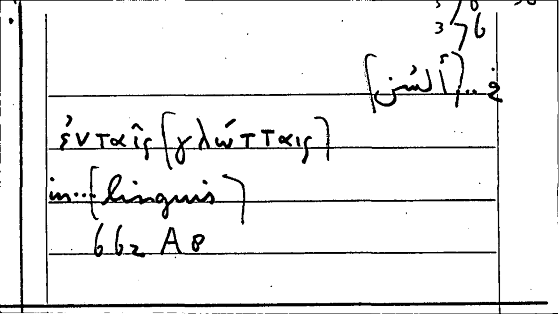 3 6
في... (ألسُن)
ἐν ταῖς (γλώτταις)
in... (linguis)
662 A 8